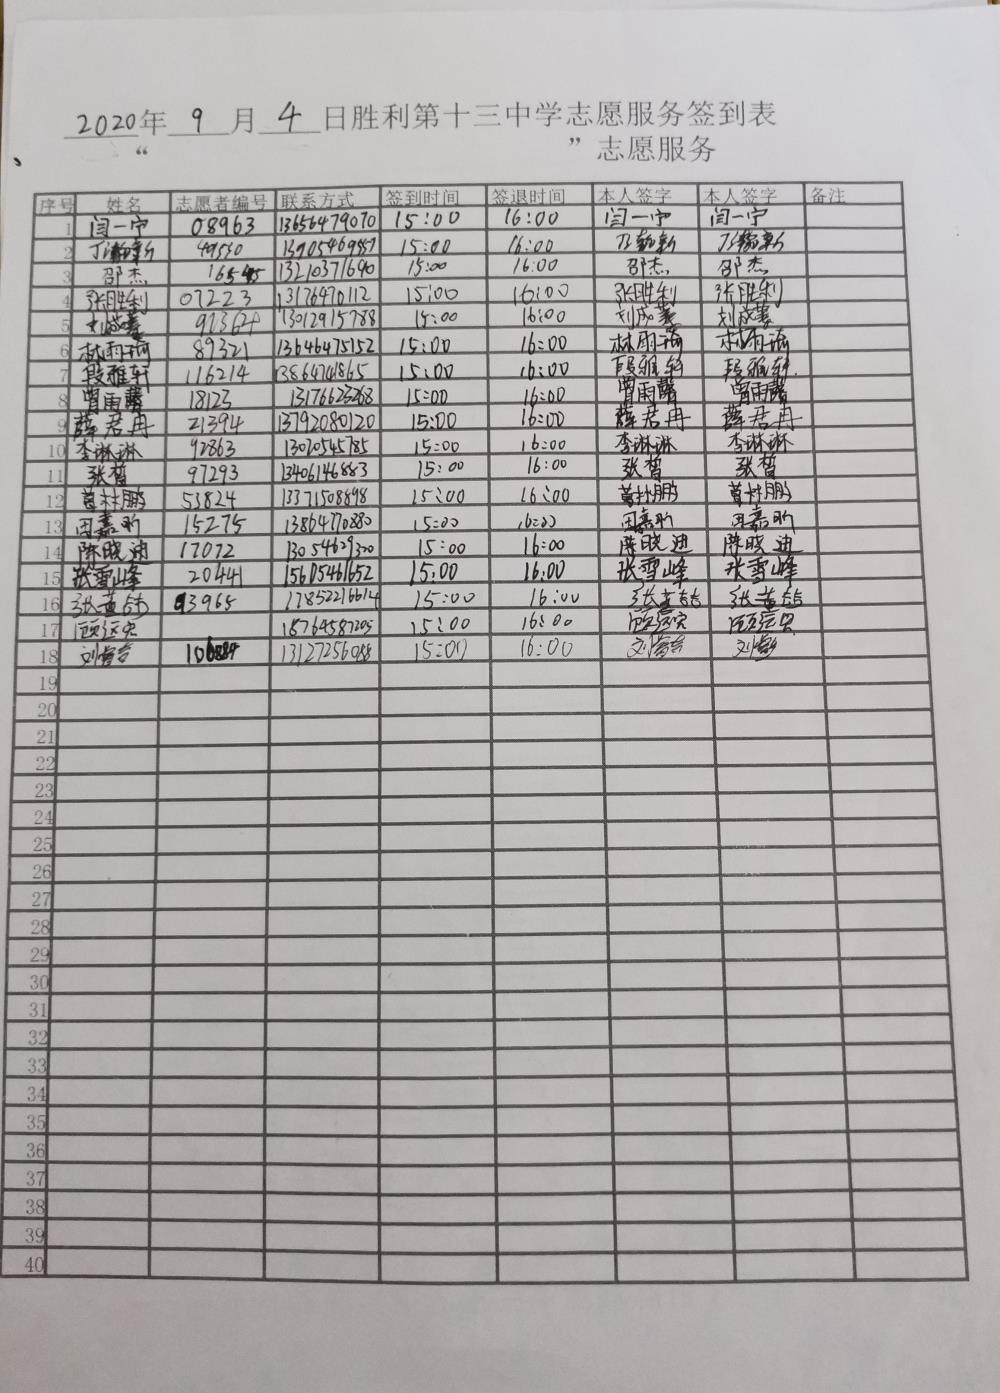 2020年 9 月 4 日胜利第十三中学志愿服务签到表
“ ”志愿服务
序号 姓名 志愿者编号 联系方式 签到时间 签退时间 本人签字 本人签字 备注
1 闫一宁 08963 13656479070 15:00 16:00 闫一宁 闫一宁
2 49550 15:00 16:00
3 邵杰 13210371690 15:00 16:00 邵杰 邵杰
4 张胜利 07223 13176470112 15:00 16:00 张胜利 张胜利
5 刘成蓁 91364 13012915788 15:00 16:00 刘成蓁 刘成蓁
6 林雨 89321 13646475152 15:00 16:00 林雨 林雨
7 段雅轩 116214 13864741865 15:00 16:00 段雅轩 段雅轩
8 曾雨馨 18123 13176623268 15:00 16:00 曾雨馨 曾雨馨
9 薛君冉 21394 13792080120 15:00 16:00 薛君冉 薛君冉
10 李琳琳 92863 13020545785 15:00 16:00 李琳琳 李琳琳
11 张哲 97293 13406146883 15:00 16:00 张哲 张哲
12 林鹏 53824 13371508898 15:00 16:00 林鹏 林鹏
13 田嘉昕 15275 13864770880 15:00 16:00 田嘉昕 田嘉昕
14 陈晓迪 17072 13054629320 15:00 16:00 陈晓迪 陈晓迪
15 张雪峰 20441 15605461652 15:00 16:00 张雪峰 张雪峰
16 张黄喆 93965 17852216614 15:00 16:00 张黄喆 张黄喆
17 顾运忠 18764587205 15:00 16:00 顾运忠 顾运忠
18 13127256088 15:00 16:00
19
20
21
22
23
24
25
26
27
28
29
30
31
32
33
34
35
36
37
38
39
40